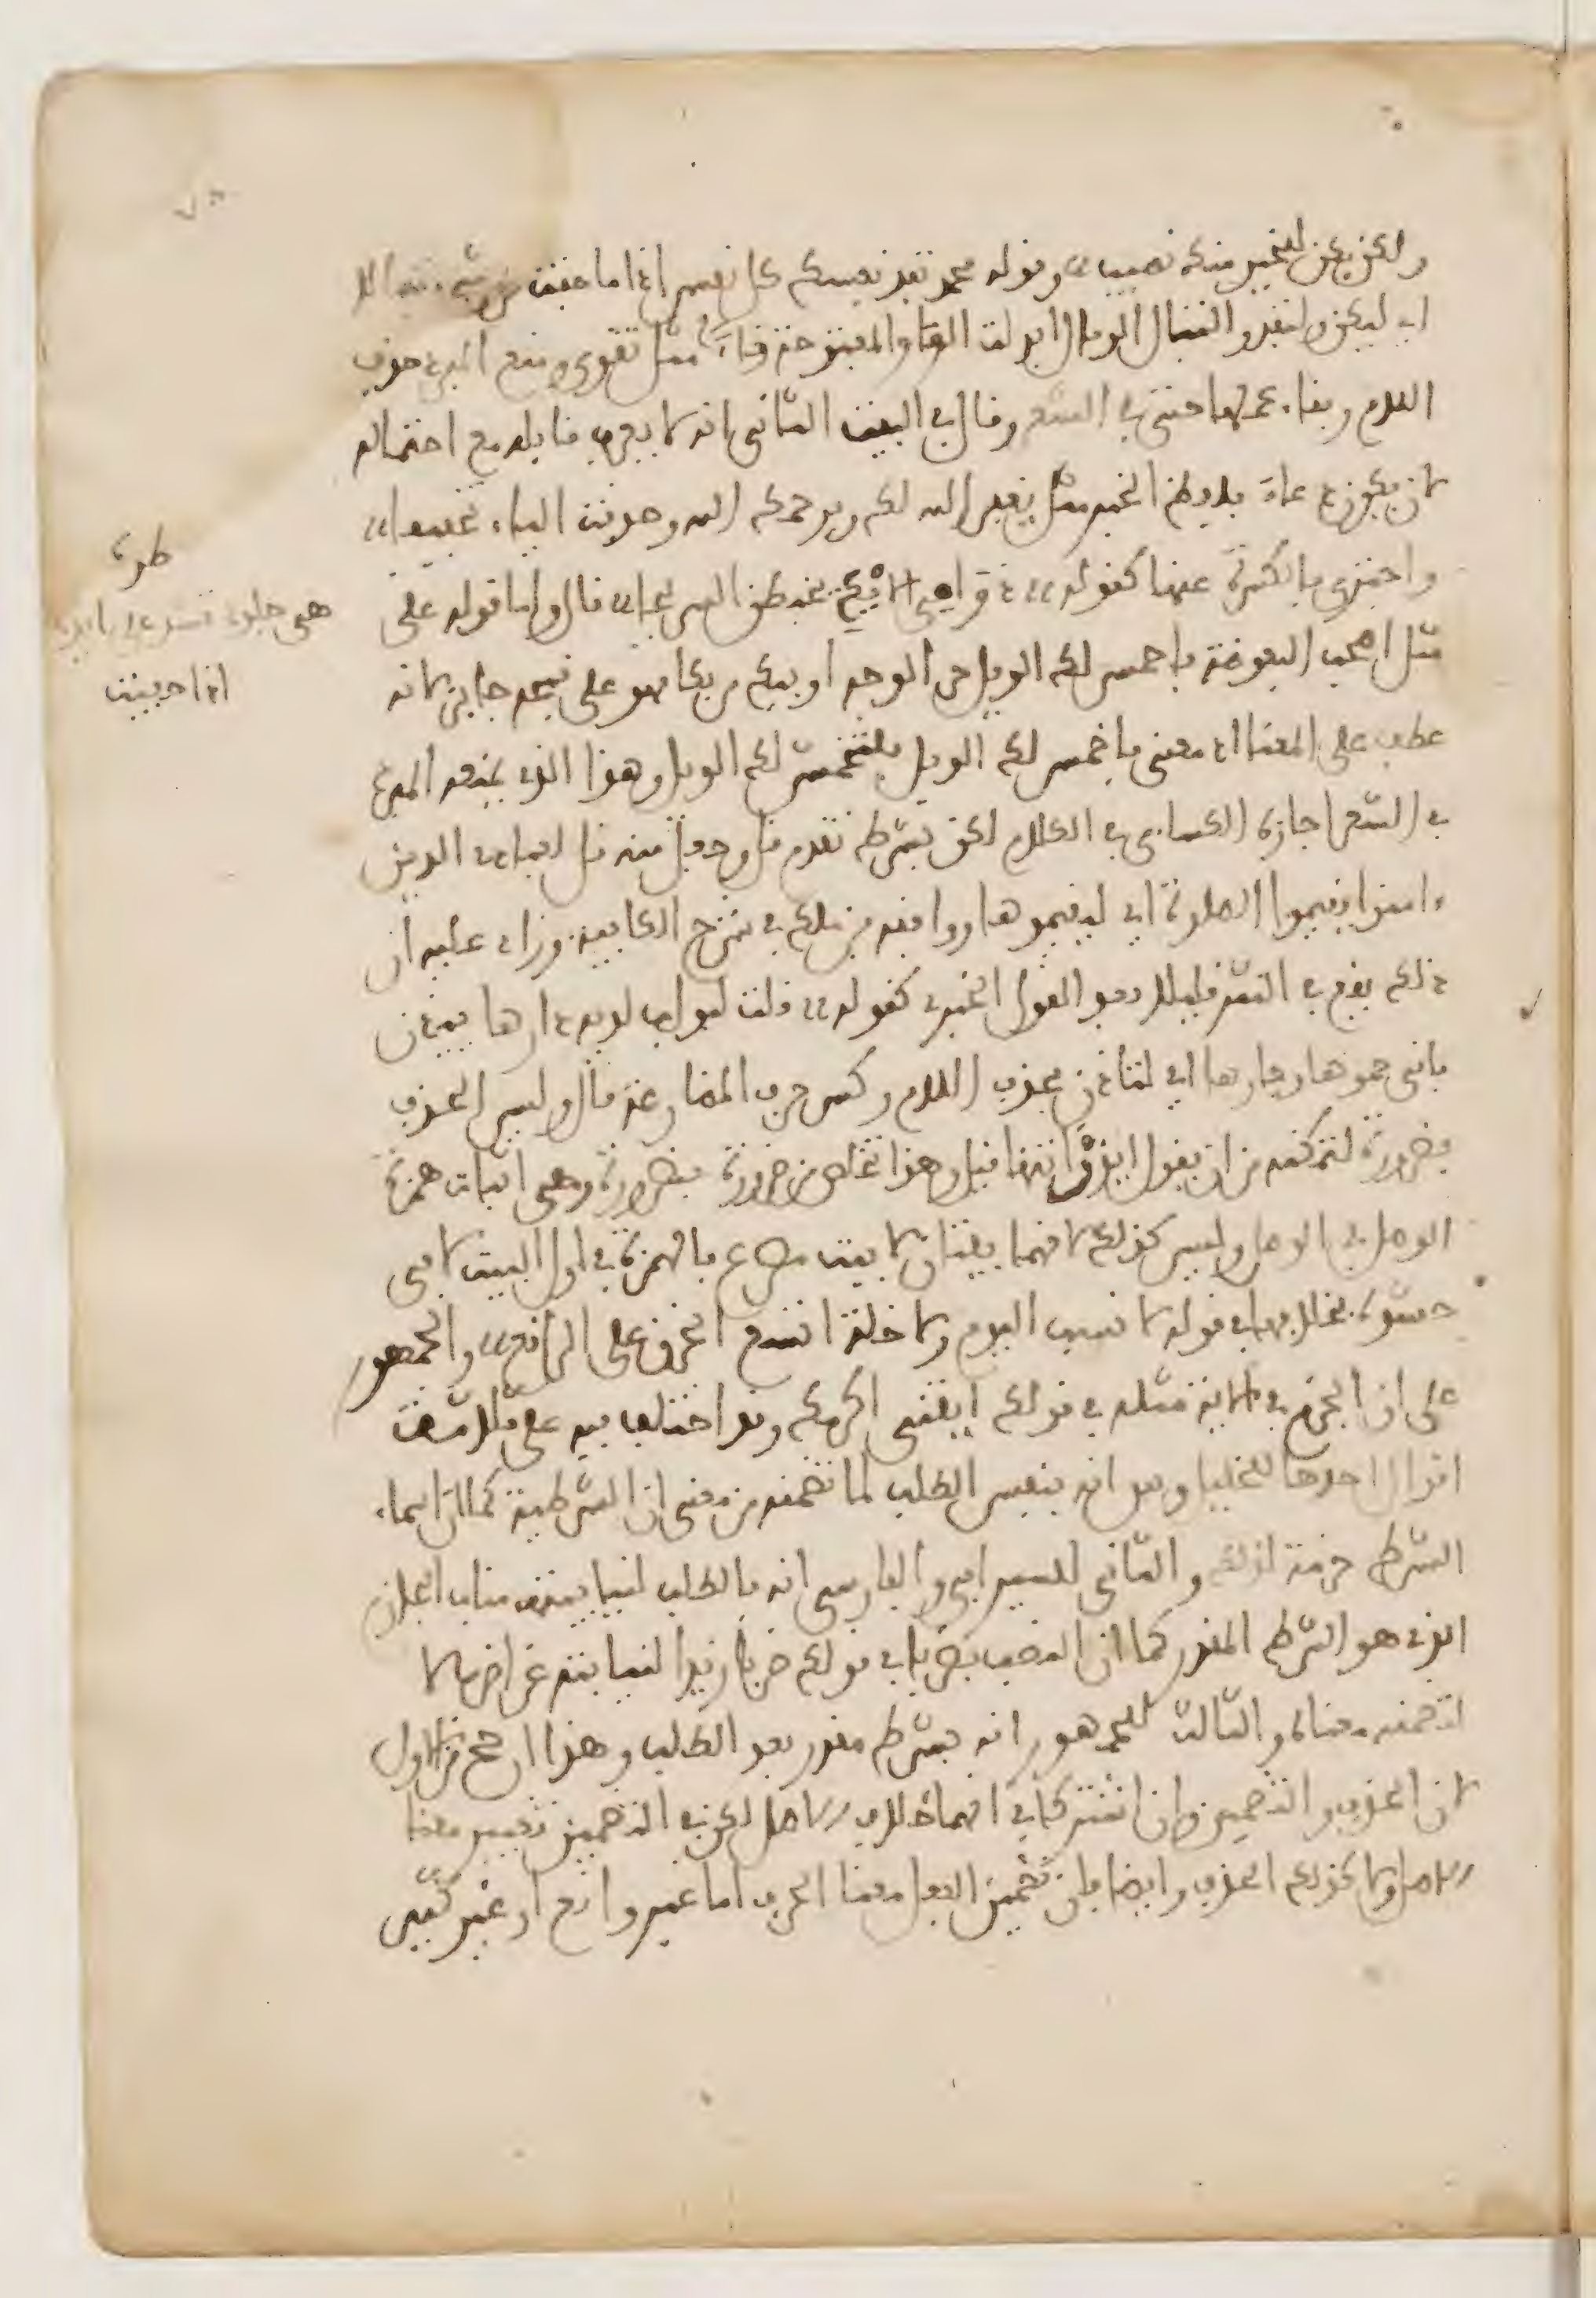 ولكن يكن للخير منك نصيب وقوله محمد تفد نفسك كل نفس اذا ما خفت من شيء تبالا
اي ليكن ولتفد والتبال الوبال ابدلت الواو المفتوحة تاء مثل تقوى ومنع المبرد حذف
اللام وبقاء عملها حتى في الشعر وقال في البيت الثاني انه لا يعرف قايله مع احتماله
لان يكون دعاء بلفظ الخبر مثل يغفر الله لك ويرحمك الله وحذفت الياء تخفيفا
واجتزي بالكسرة عنها كقوله دوامي الايد يخبطن السريحا قال واما قوله على
مثل اصحاب البعوضة فاخمشي لك الويل حر الوجه او يبك من بكا فهو على قبحه جايز لانه
عطف على المعنا اذ معنى فاخمشي لك الويل فلتخمشي لك الويل وهذا الذي يمنعه المبرد
في الشعر اجازه الكسائي في الكلام لكن بشرط تقدم قل وجعل منه قل لعبادي الذين
ءامنوا يقيموا الصلوة اي ليقيموها ووافقه بن ملك في شرح الكافية وزاد عليه ان
ذلك يقع في النثر قليلا بعد القول الخبري كقوله قلت لبواب لديه دارها تيذن
فاني حموها وجارها اي لتاذن بحذف اللام وكسر حرف المضارعة قال وليس الحذف
بضرورة لتمكنه من ان يقول ايذن انتها قيل وهذا تخلص من ضرورة بضرورة وهي اثبات همزة
الوصل في الوصل وليس كذلك لانهما بيتان لا بيت مصرع فالهمزة في اول البيت لا في
حشوه بخلافها في قوله لا نسب اليوم ولا خلة اتسع الخرق على الراقع والجمهور
على ان الجزم في الاية مثله في قولك ايتني اكرمك وقد اختلف فيه على ثلاثة
اقوال احدها للخليل وهو انه بنفس الطلب لما تضمنه من معنى ان الشرطية كما ان اسماء
الشرط جزمت لذلك والثاني للسيرافي والفارسي انه بالطلب لنيابته مناب الجازم
الذي هو الشرط المقدر كما ان النصب بضربا في قولك ضربا زيدا لنيابته عن اضرب لا
لتضمنه معناه والثالث للجمهور انه بشرط مقدر بعد الطلب وهذا ارجح من الاول
لان الحذف والتضمين وان اشتركا في انهما خلاف الاصل لكن في التضمين تغيير معنا
الاصل ولا كذلك الحذف وايضا فان تضمين الفعل معنا الحرف اما غير واقع او غير كثير
طرة
انما حذفت